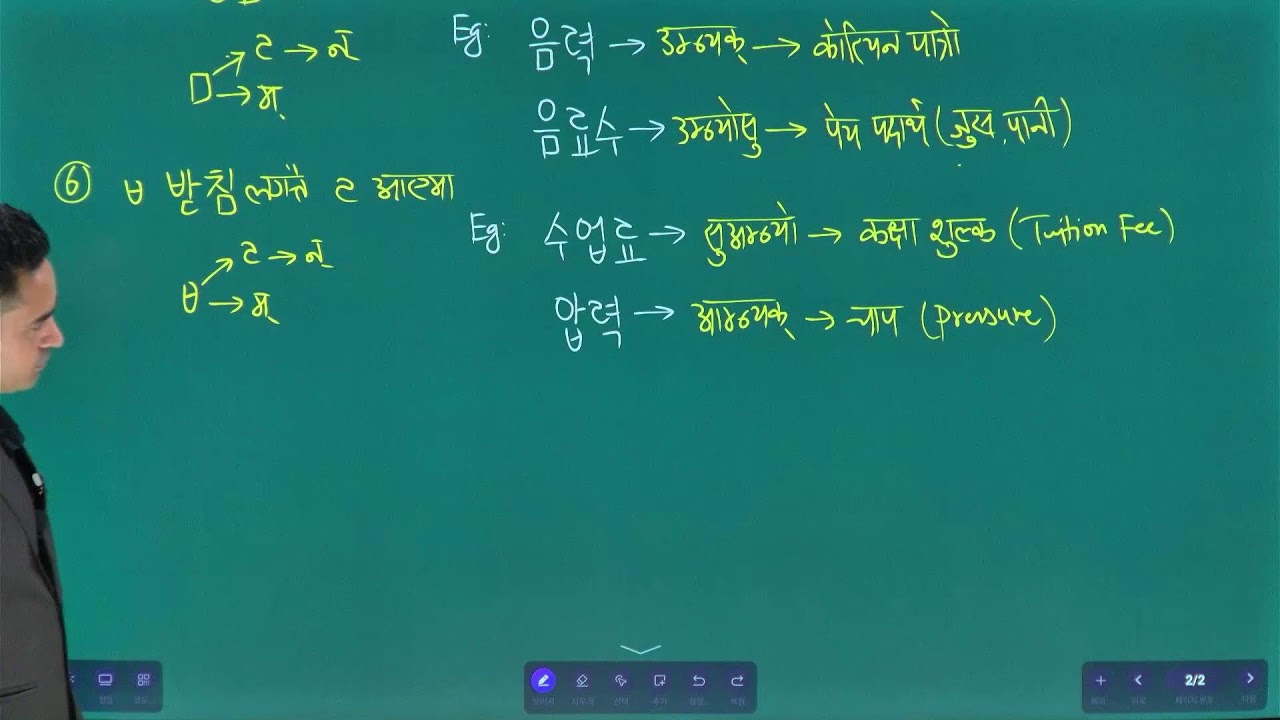 ㄹ → न्
ㅁ → म्
Eg: 음력 → उमन्यक् → कोरियन पात्रो
음료수 → उमन्योसु → पेय पदार्थ (जुस, पानी)
⑥ ㅂ 받침 लगत्तै ㄹ आएमा
ㄹ → न्
ㅂ → म्
Eg: 수업료 → सुअमन्यो → कक्षा शुल्क (Tuition Fee)
압력 → आमन्यक् → चाप (Pressure)
2/2